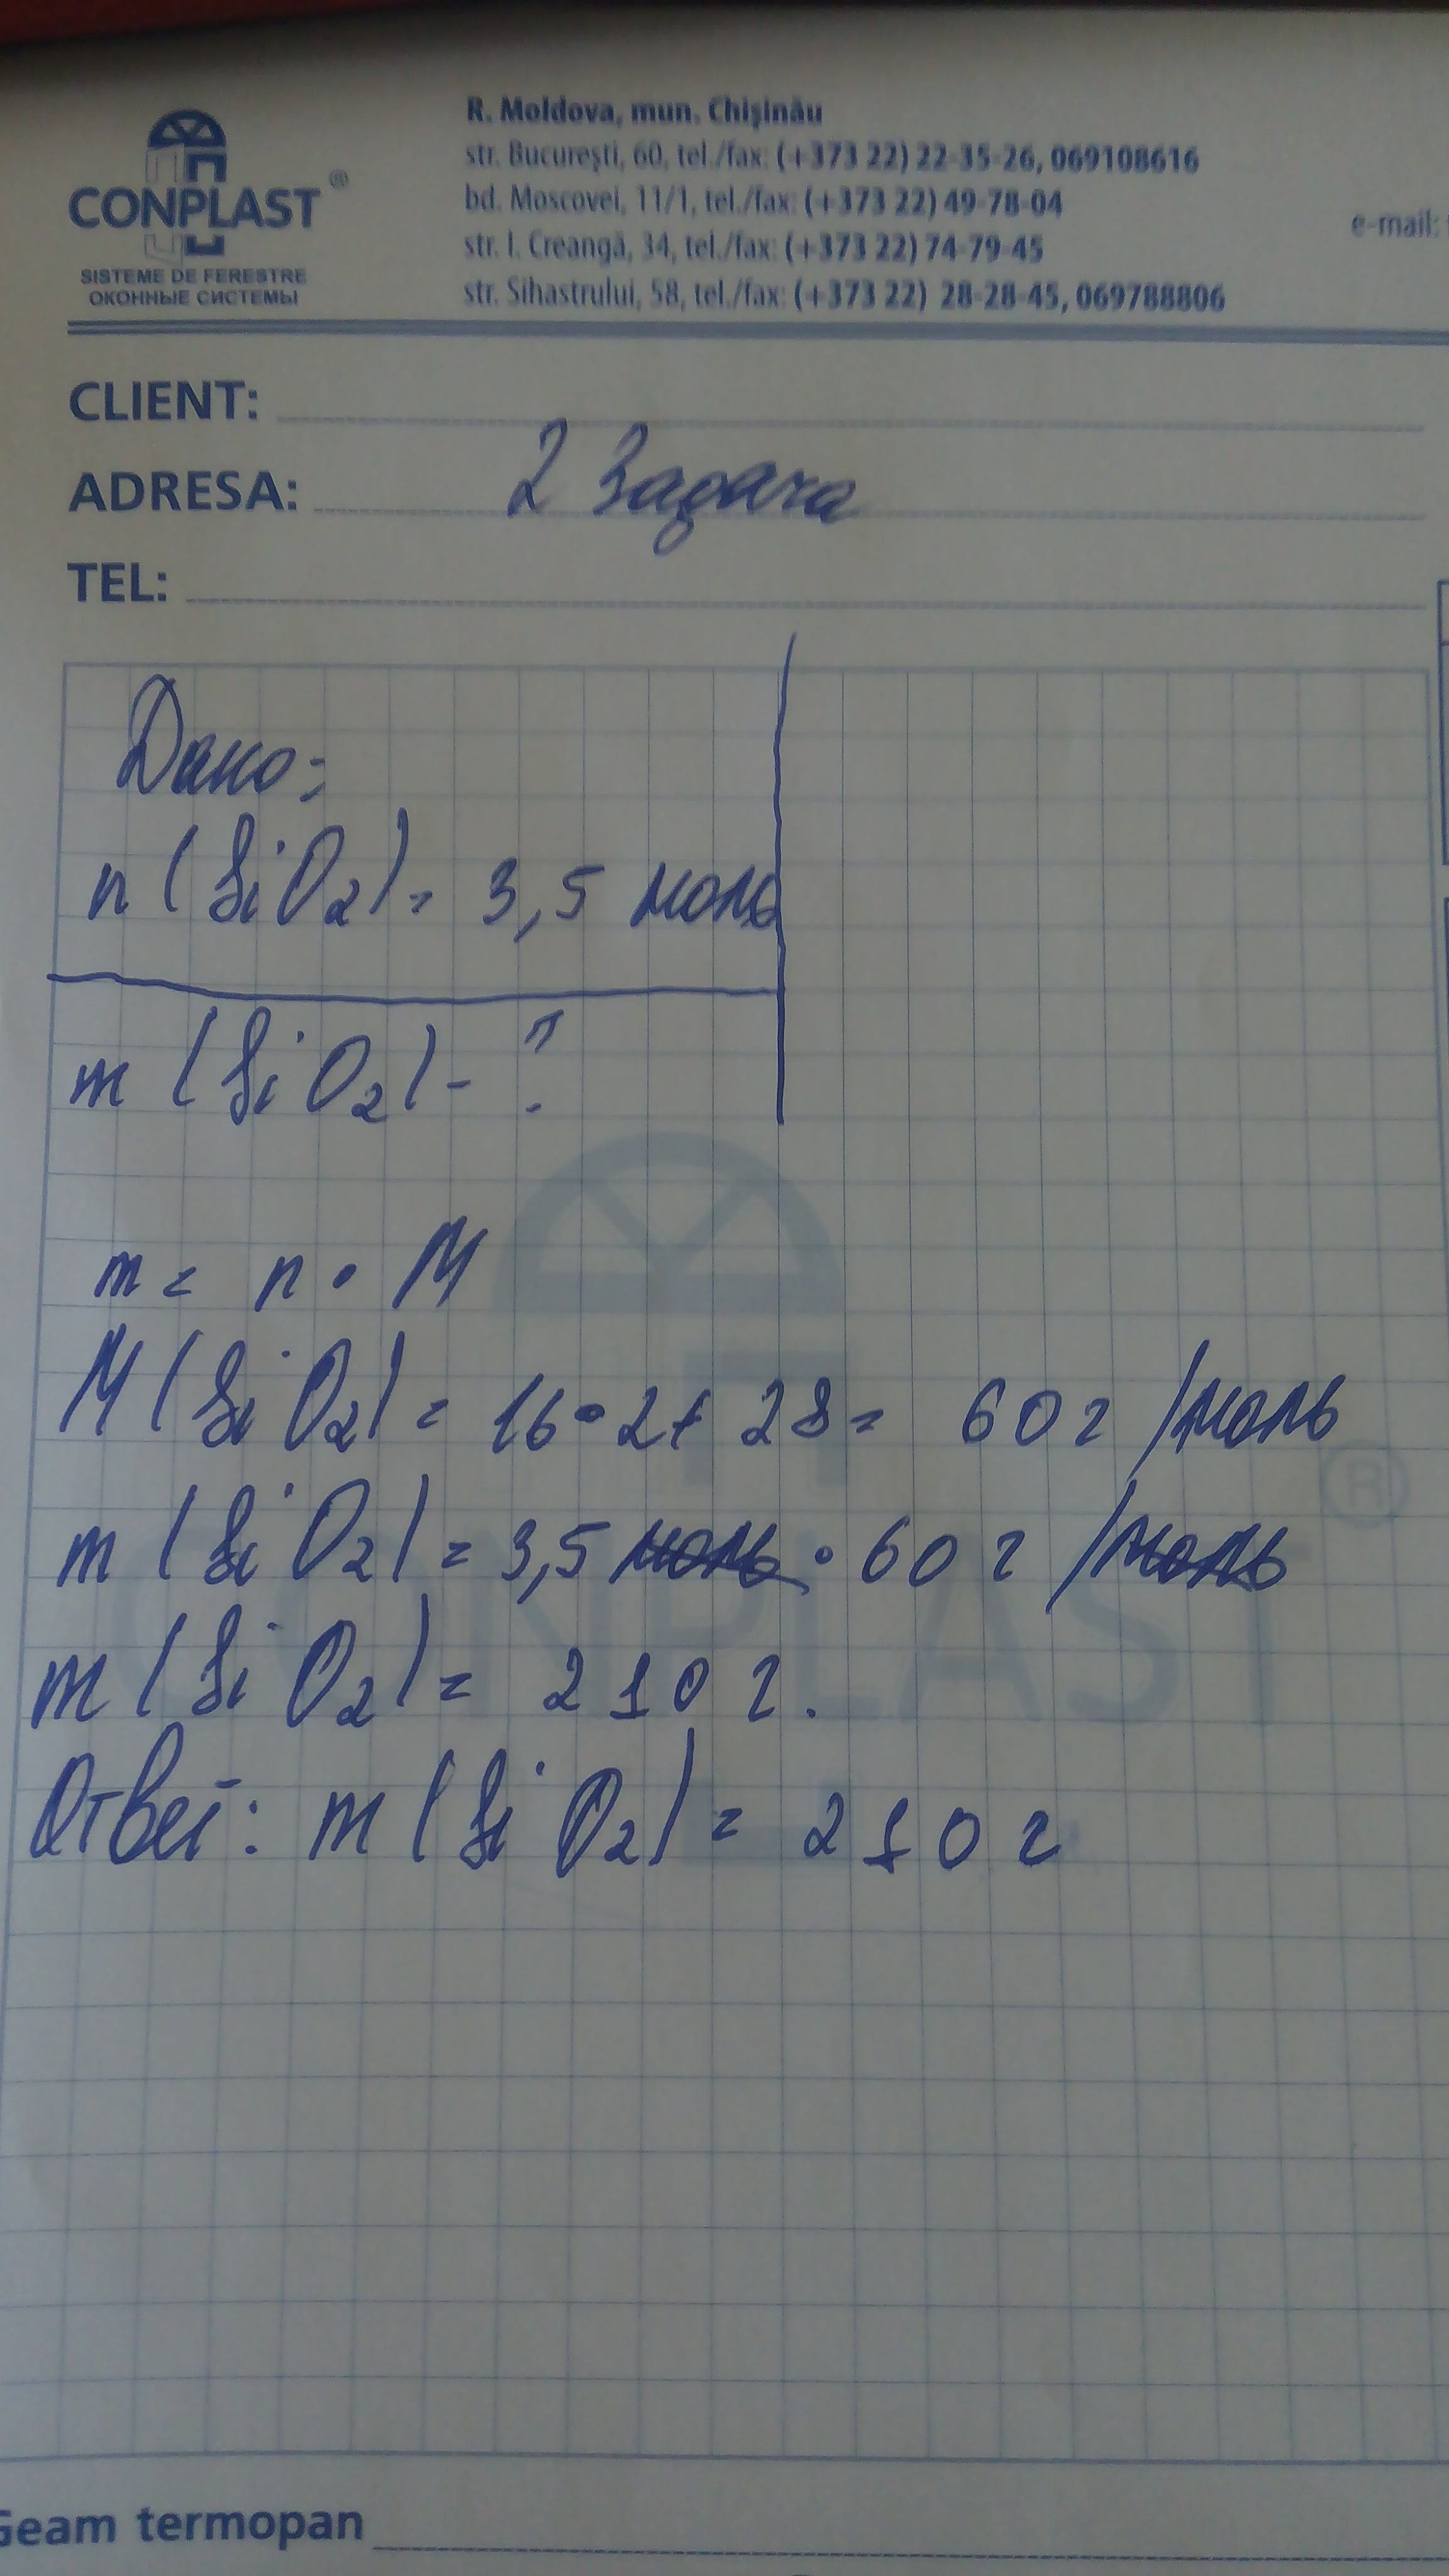 CONPLAST ®
SISTEME DE FERESTRE
ОКОННЫЕ СИСТЕМЫ
R. Moldova, mun. Chişinău
str. Bucureşti, 60, tel./fax: (+373 22) 22-35-26, 069108616
bd. Moscovei, 11/1, tel./fax: (+373 22) 49-78-04
str. I. Creangă, 34, tel./fax: (+373 22) 74-79-45
str. Sihastrului, 58, tel./fax: (+373 22) 28-28-45, 069788806
e-mail:
CLIENT:
ADRESA: 2 Задача
TEL:
Дано:
n (SiO₂) = 3,5 моль
m (SiO₂) - ?
m = n • M
M (SiO₂) = 16 • 2 + 28 = 60 г /моль
m (SiO₂) = 3,5 моль • 60 г /моль
m (SiO₂) = 210 г.
Ответ: m (SiO₂) = 210 г
CONPLAST ®
Geam termopan